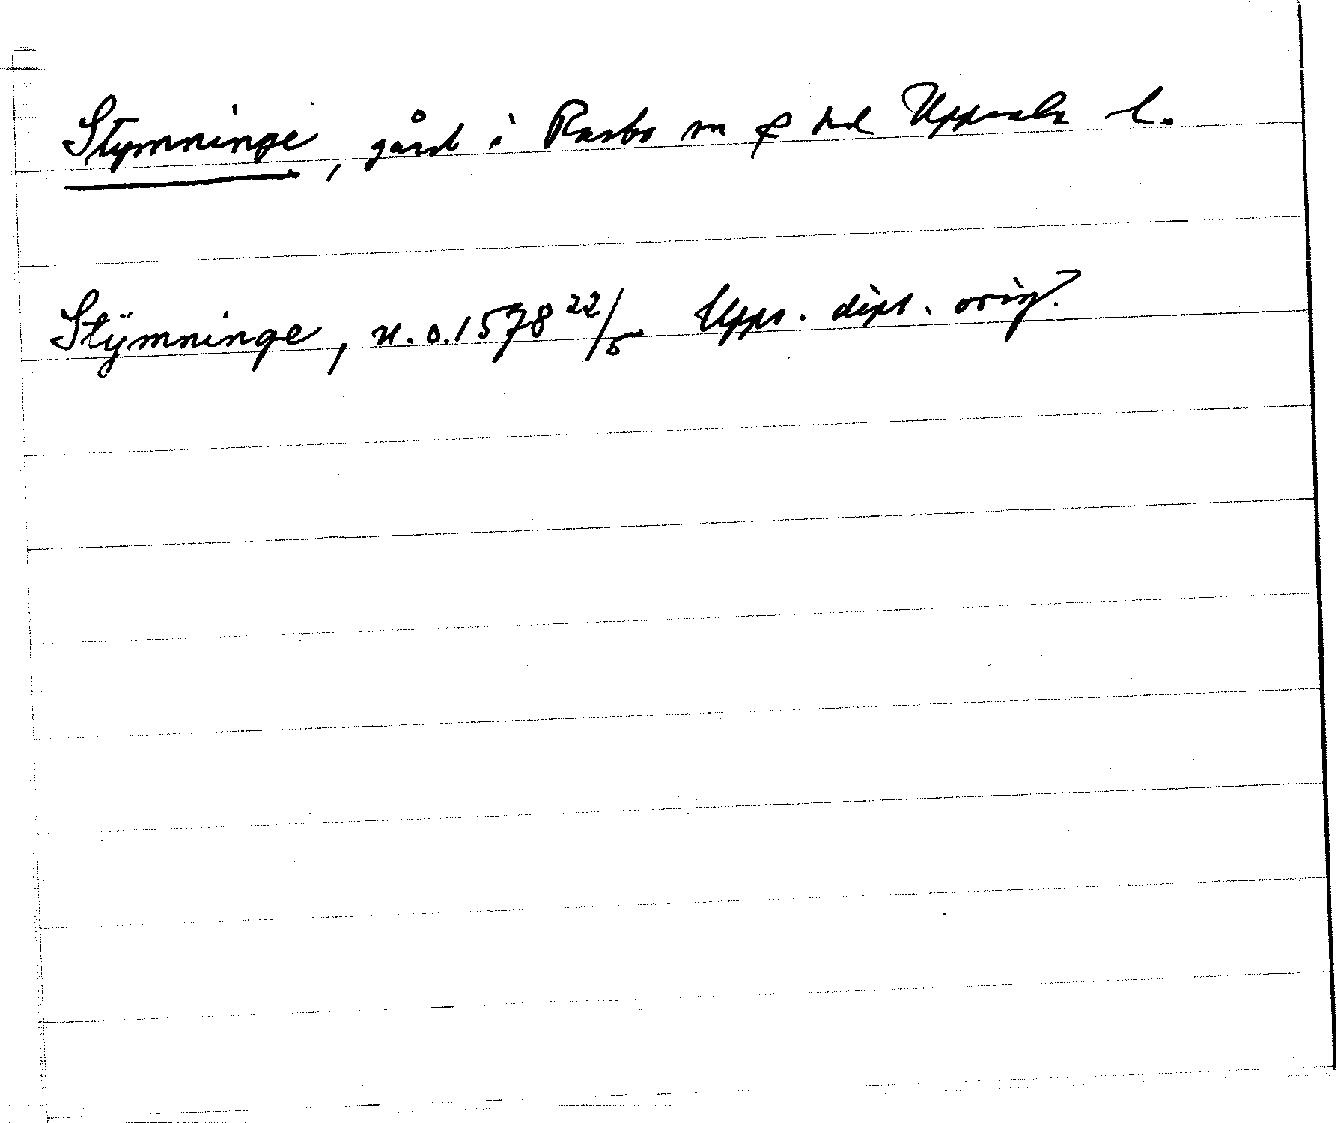 Stymninge, gård i Rasbo sn o hd Uppsala l.
Stÿmninge, u.o. 1578 22/5 Upps. dipl. orig.